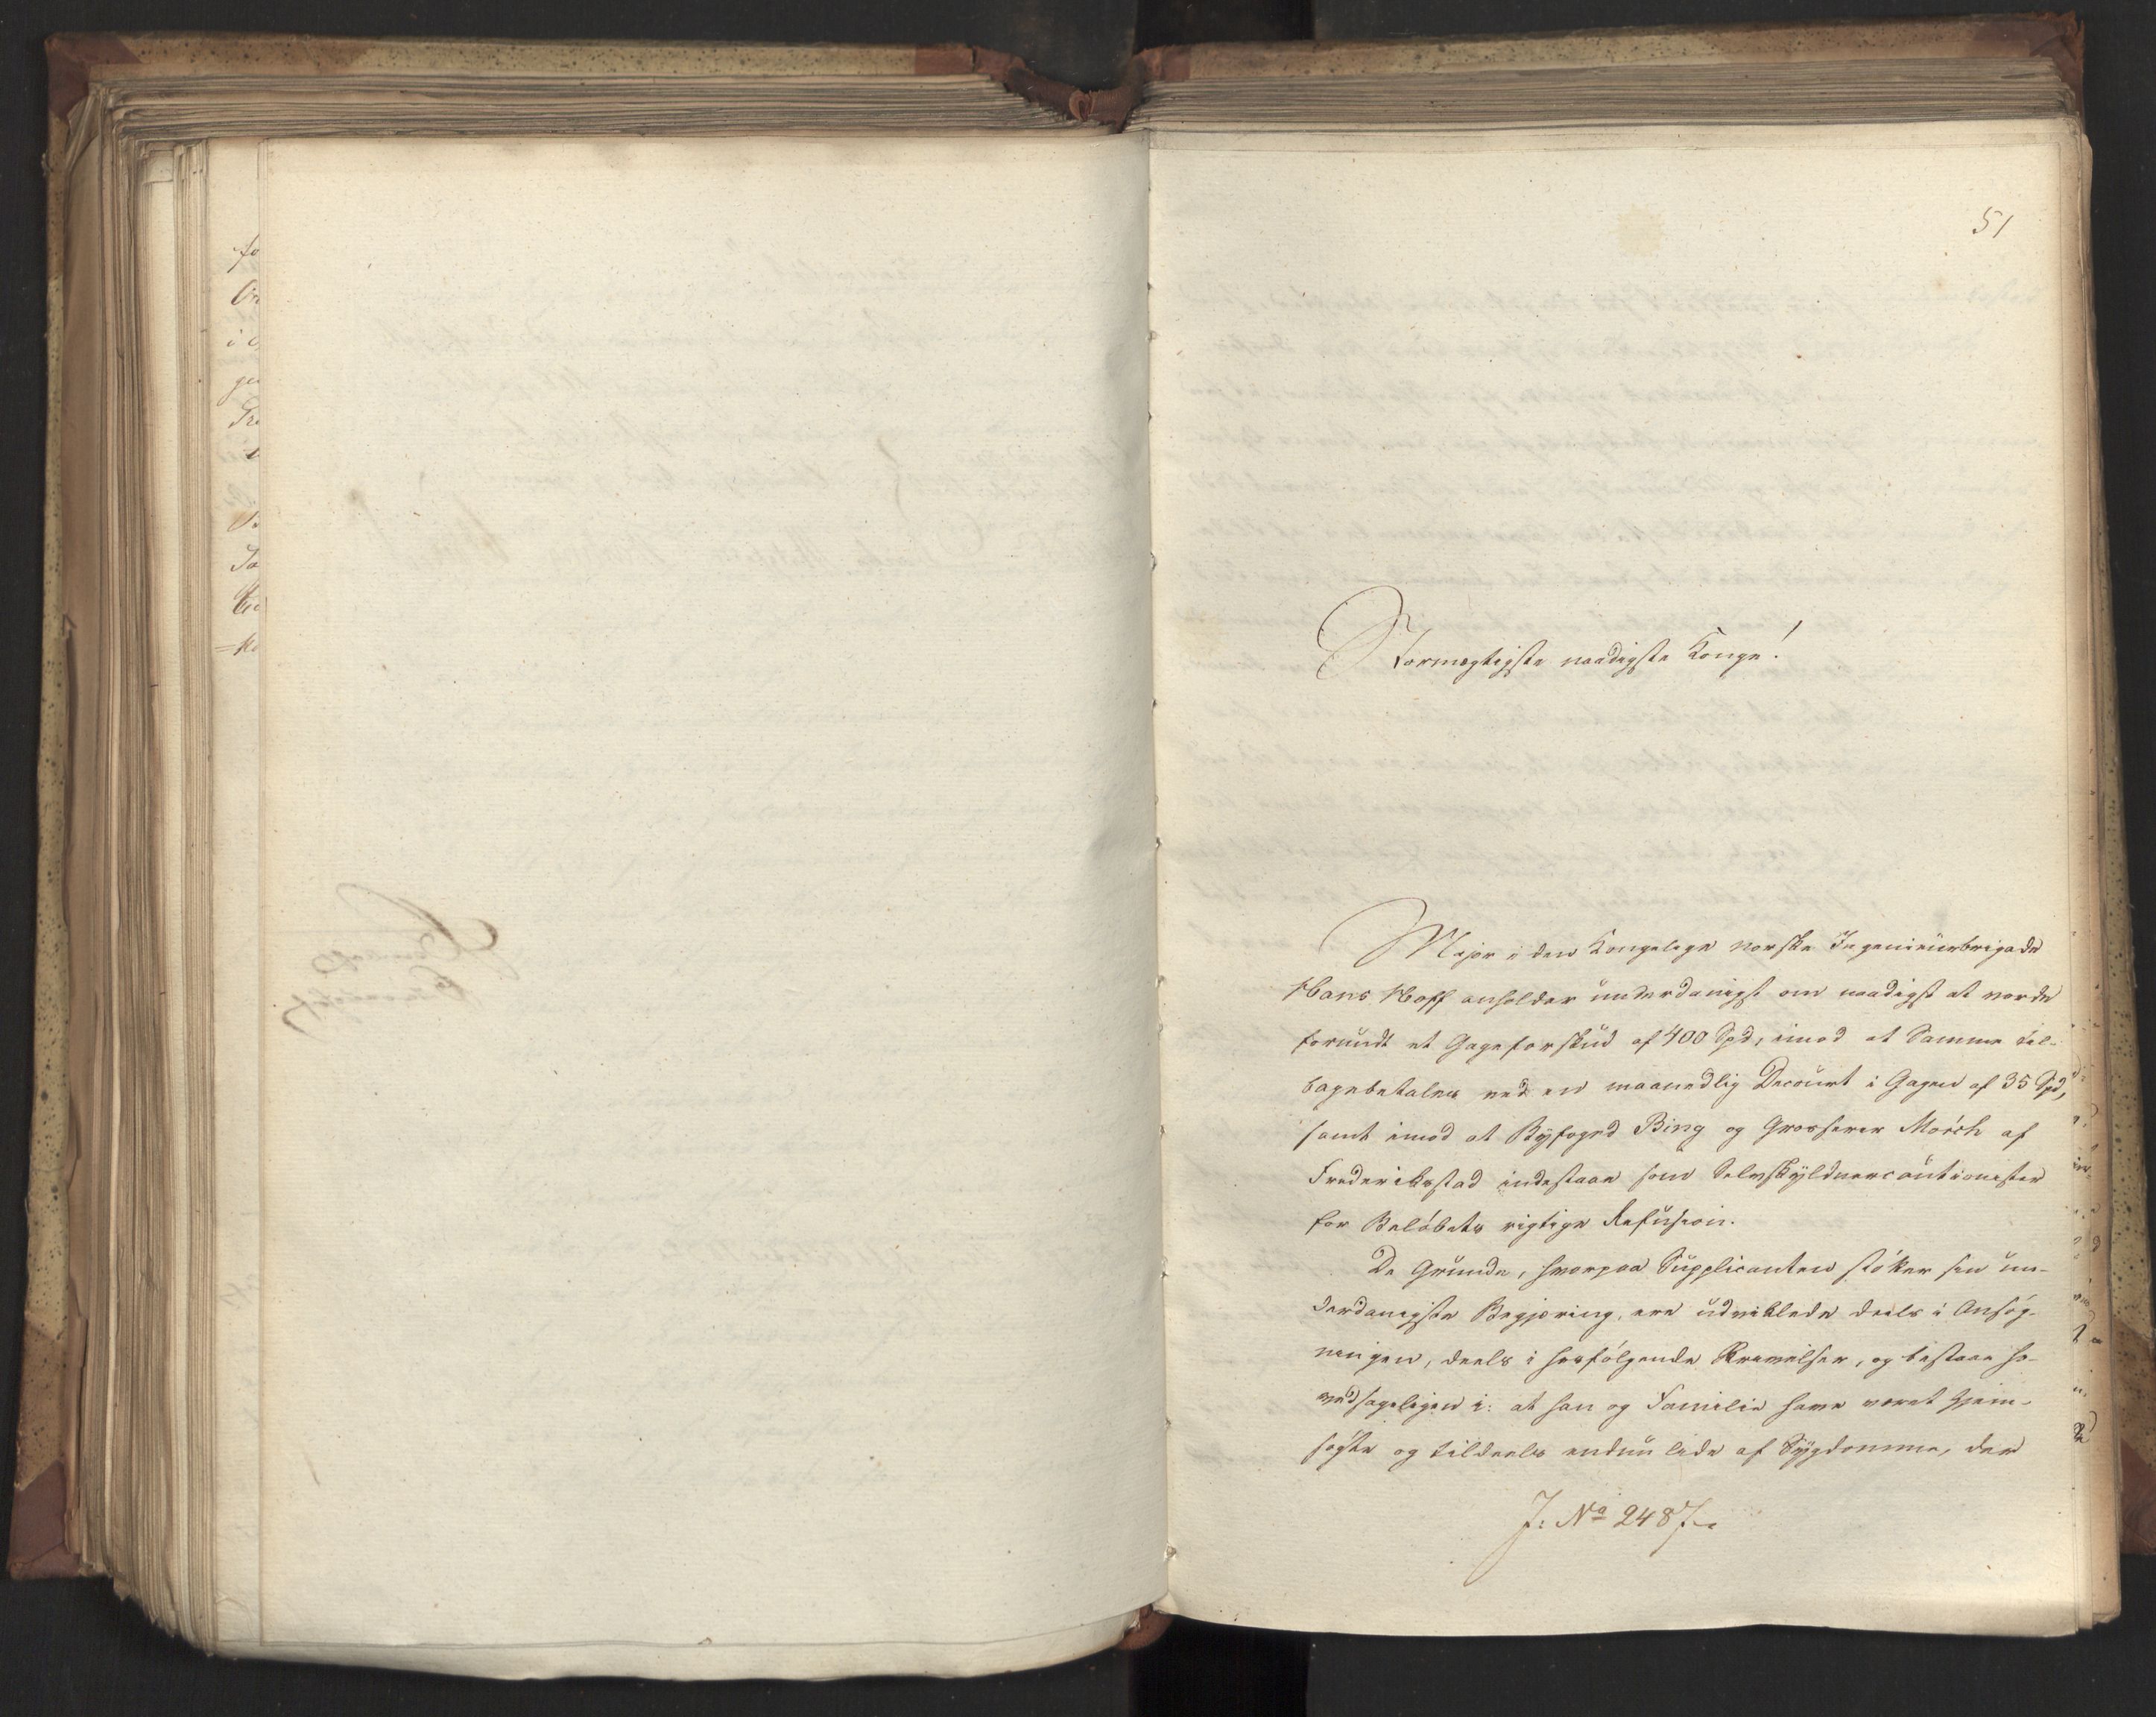 51
Stormægtigste naadigste Konge!
Major i den Kongelige norske Ingenieurbrigade
Hans Hoff anholder underdanigst om naadigst at vorde
forundt et Gageforskud af 400 Spd, imod at Samme til-
bagebetales ved en maanedlig Decourt i Gagen af 35 Spd,
samt imod at Byfoged Bing og Grosserer Mörch af
Frederikstad indestaae som Selvskyldnercautionister
for Belöbets rigtige Refusion.
De Grunde, hvorpaa Supplicanten stöker sin un-
derdanigste Begjæring, ere udviklede deels i Ansög-
ningen, deels i hosfölgende Skrivelser, og bestaae ho-
vedsageligen i: at han og Familie have været hjem-
sögte og tildeels endnu lide af Sygdomme, der
J: No 2487
fo
i
ge